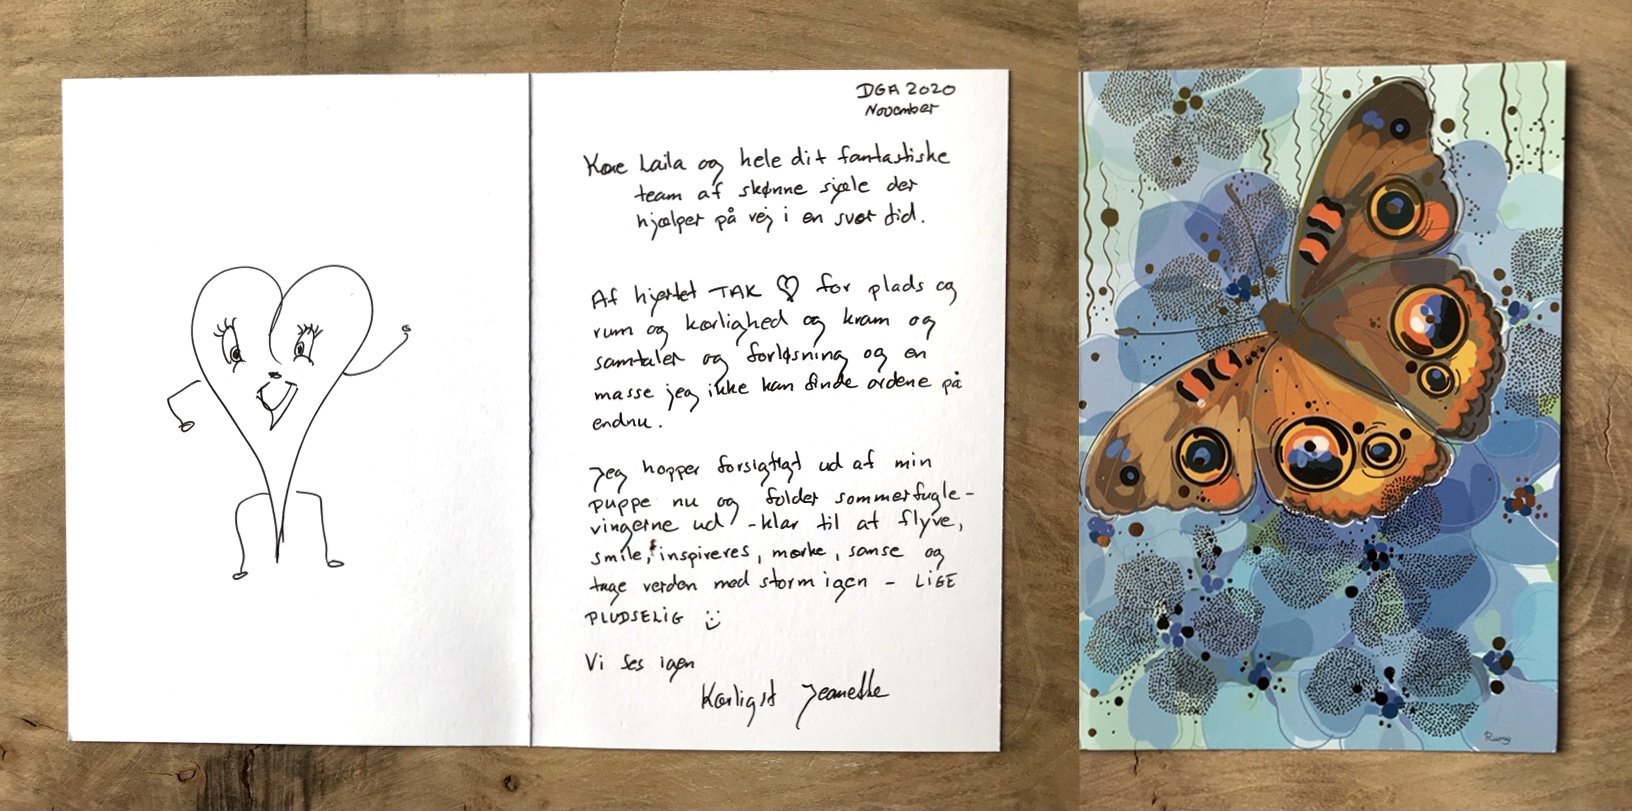 DGA 2020
November
Kære Laila og hele dit fantastiske
team af skønne sjæle der
hjælper på vej i en svær tid.
Af hjertet TAK ♡ for plads og
rum og kærlighed og kram og
samtaler og forløsning og en
masse jeg ikke kan finde ordene på
endnu.
Jeg hopper forsigtigt ud af min
puppe nu og folder sommerfugle-
vingerne ud - klar til at flyve,
smile, inspireres, mærke, sanse og
tage verden med storm igen - LIGE
PLUDSELIG :)
Vi ses igen
Kærligst Jeanette
Rumy